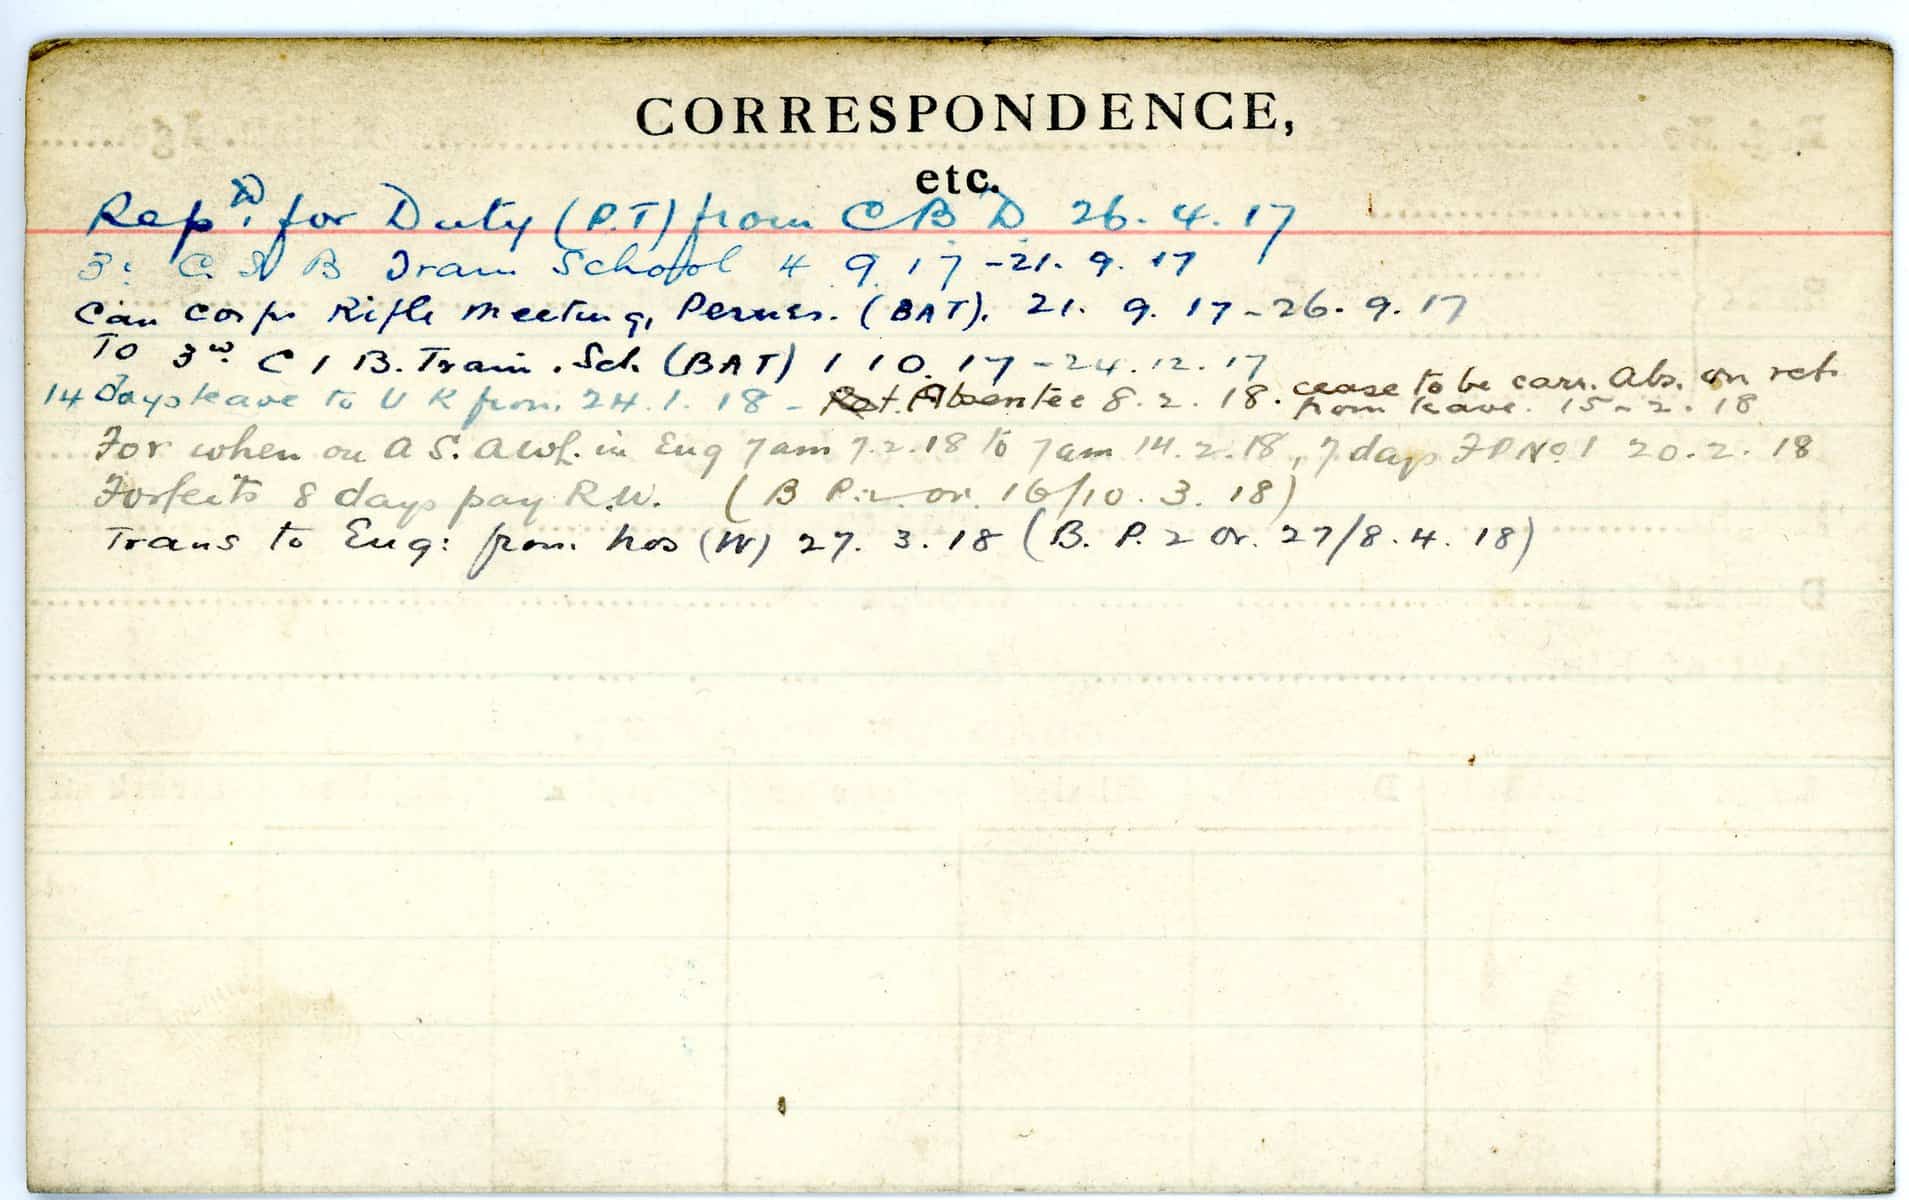 CORRESPONDENCE,
etc.
Repd. for Duty (P.T) from C B D 26.4.17
3: C. I B Train School 4 9 17 - 21. 9. 17
Can corps Rifle Meeting, Pernes. (BAT). 21. 9. 17 - 26. 9. 17
To 3rd C I B. Train. Sch (BAT) 1 10. 17 - 24.12.17
14 days leave to U K from 24.1.18 - Ret. Absentee 8.2.18. cease to be carr. Abs. on ret.
from leave. 15-2.18
For when on A S. AWL. in Eng 7am 7.2.18 to 7am 14.2.18, 7 days FP No 1 20.2.18
Forfeits 8 days pay R.W. (B P. 2 or. 16/10. 3. 18)
Trans to Eng: from hos (W) 27. 3. 18 (B. P. 2 or. 27/8. 4. 18)